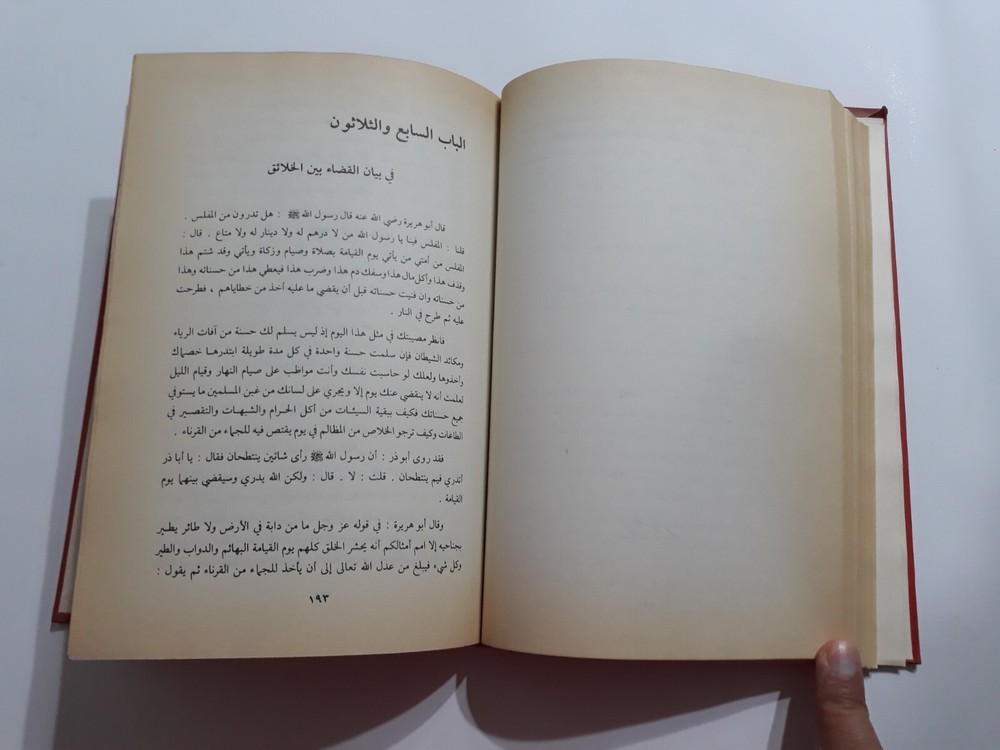 الباب السابع والثلاثون
في بيان القضاء بين الخلائق
قال أبو هريرة رضي الله عنه قال رسول الله ﷺ : هل تدرون من المفلس .
قلنا : المفلس فينا يا رسول الله من لا درهم له ولا دينار له ولا متاع . قال :
المفلس من أمتي من يأتي يوم القيامة بصلاة وصيام وزكاة ويأتي وقد شتم هذا
وقذف هذا وأكل مال هذا وسفك دم هذا وضرب هذا فيعطي هذا من حسناته وهذا
من حسناته وان فنيت حسناته قبل أن يقضي ما عليه أخذ من خطاياهم ، فطرحت
عليه ثم طرح في النار .
فانظر مصيبتك في مثل هذا اليوم إذ ليس يسلم لك حسنة من آفات الرياء
ومكائد الشيطان فإن سلمت حسنة واحدة في كل مدة طويلة ابتدرها خصماك
واخذوها ولعلك لو حاسبت نفسك وأنت مواظب على صيام النهار وقيام الليل
لعلمت أنه لا ينقضي عنك يوم إلا ويجري على لسانك من غبن المسلمين ما يستوفي
جميع حسناتك فكيف ببقية السيئات من أكل الحرام والشبهات والتقصير في
الطاعات وكيف ترجو الخلاص من المظالم في يوم يقتص فيه للجماء من القرناء .
فقد روى أبو ذر : أن رسول الله ﷺ رأى شاتين ينتطحان فقال : يا أبا ذر
أتدري فيم ينتطحان . قلت : لا . قال : ولكن الله يدري وسيقضي بينهما يوم
القيامة .
وقال أبو هريرة : في قوله عز وجل ما من دابة في الأرض ولا طائر يطير
بجناحيه إلا امم أمثالكم أنه يحشر الخلق كلهم يوم القيامة البهائم والدواب والطير
وكل شيء فيبلغ من عدل الله تعالى إلى أن يأخذ للجماء من القرناء ثم يقول :
١٩٣